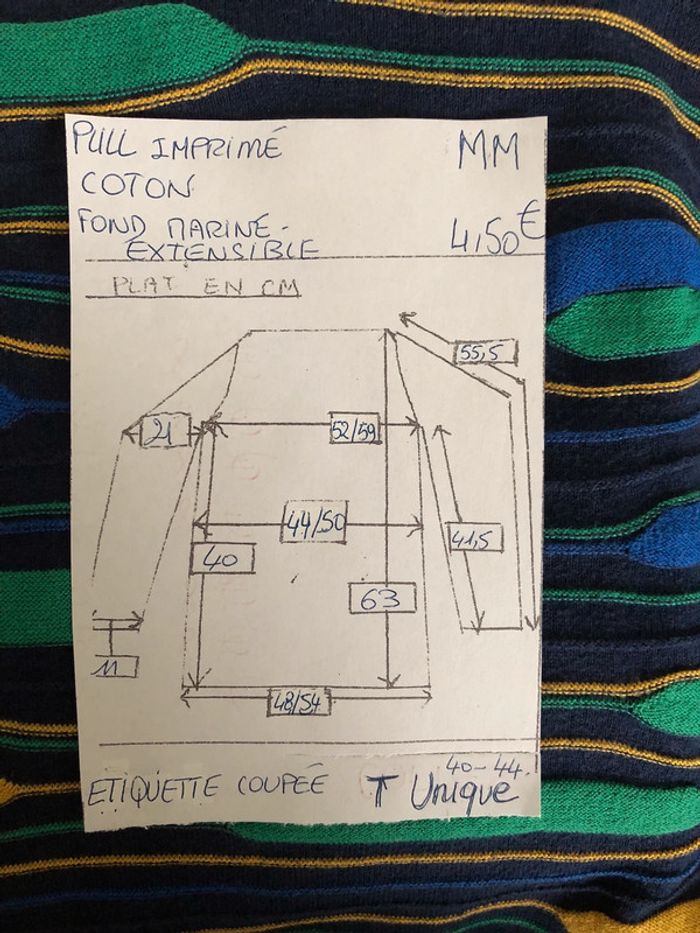 PULL IMPRIMÉ
MM
COTON
FOND MARINE-
EXTENSIBLE
4,50€
PLAT EN CM
55,5
21
52/59
44/50
41,5
40
63
11
48/54
40-44.
ETIQUETTE COUPÉE T Unique